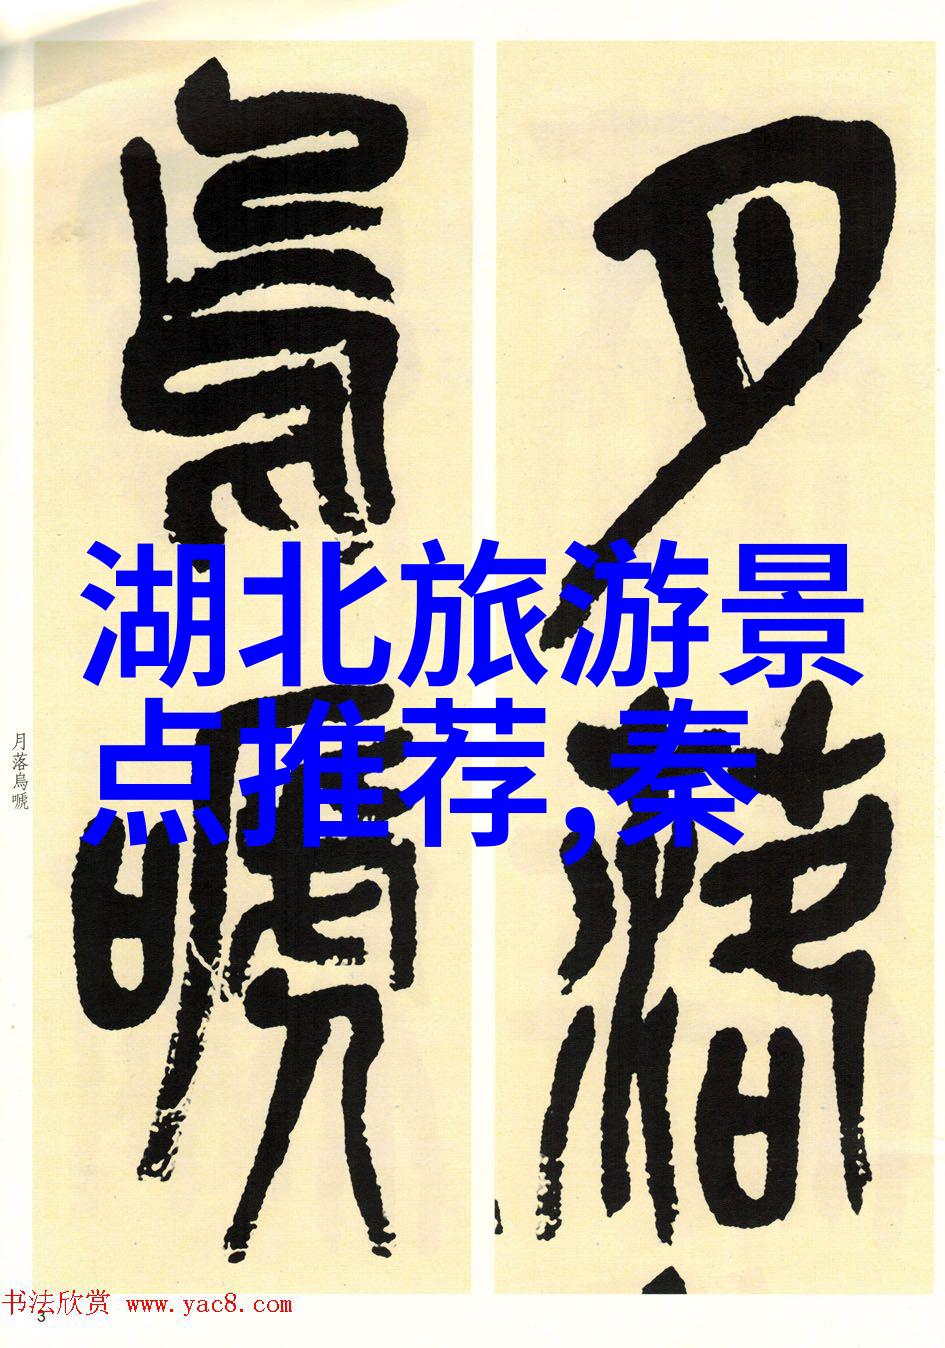 月落
烏嗁
湖北旅游景
点推荐,秦
月落烏嗁
书法欣赏 www.yac8.com
3